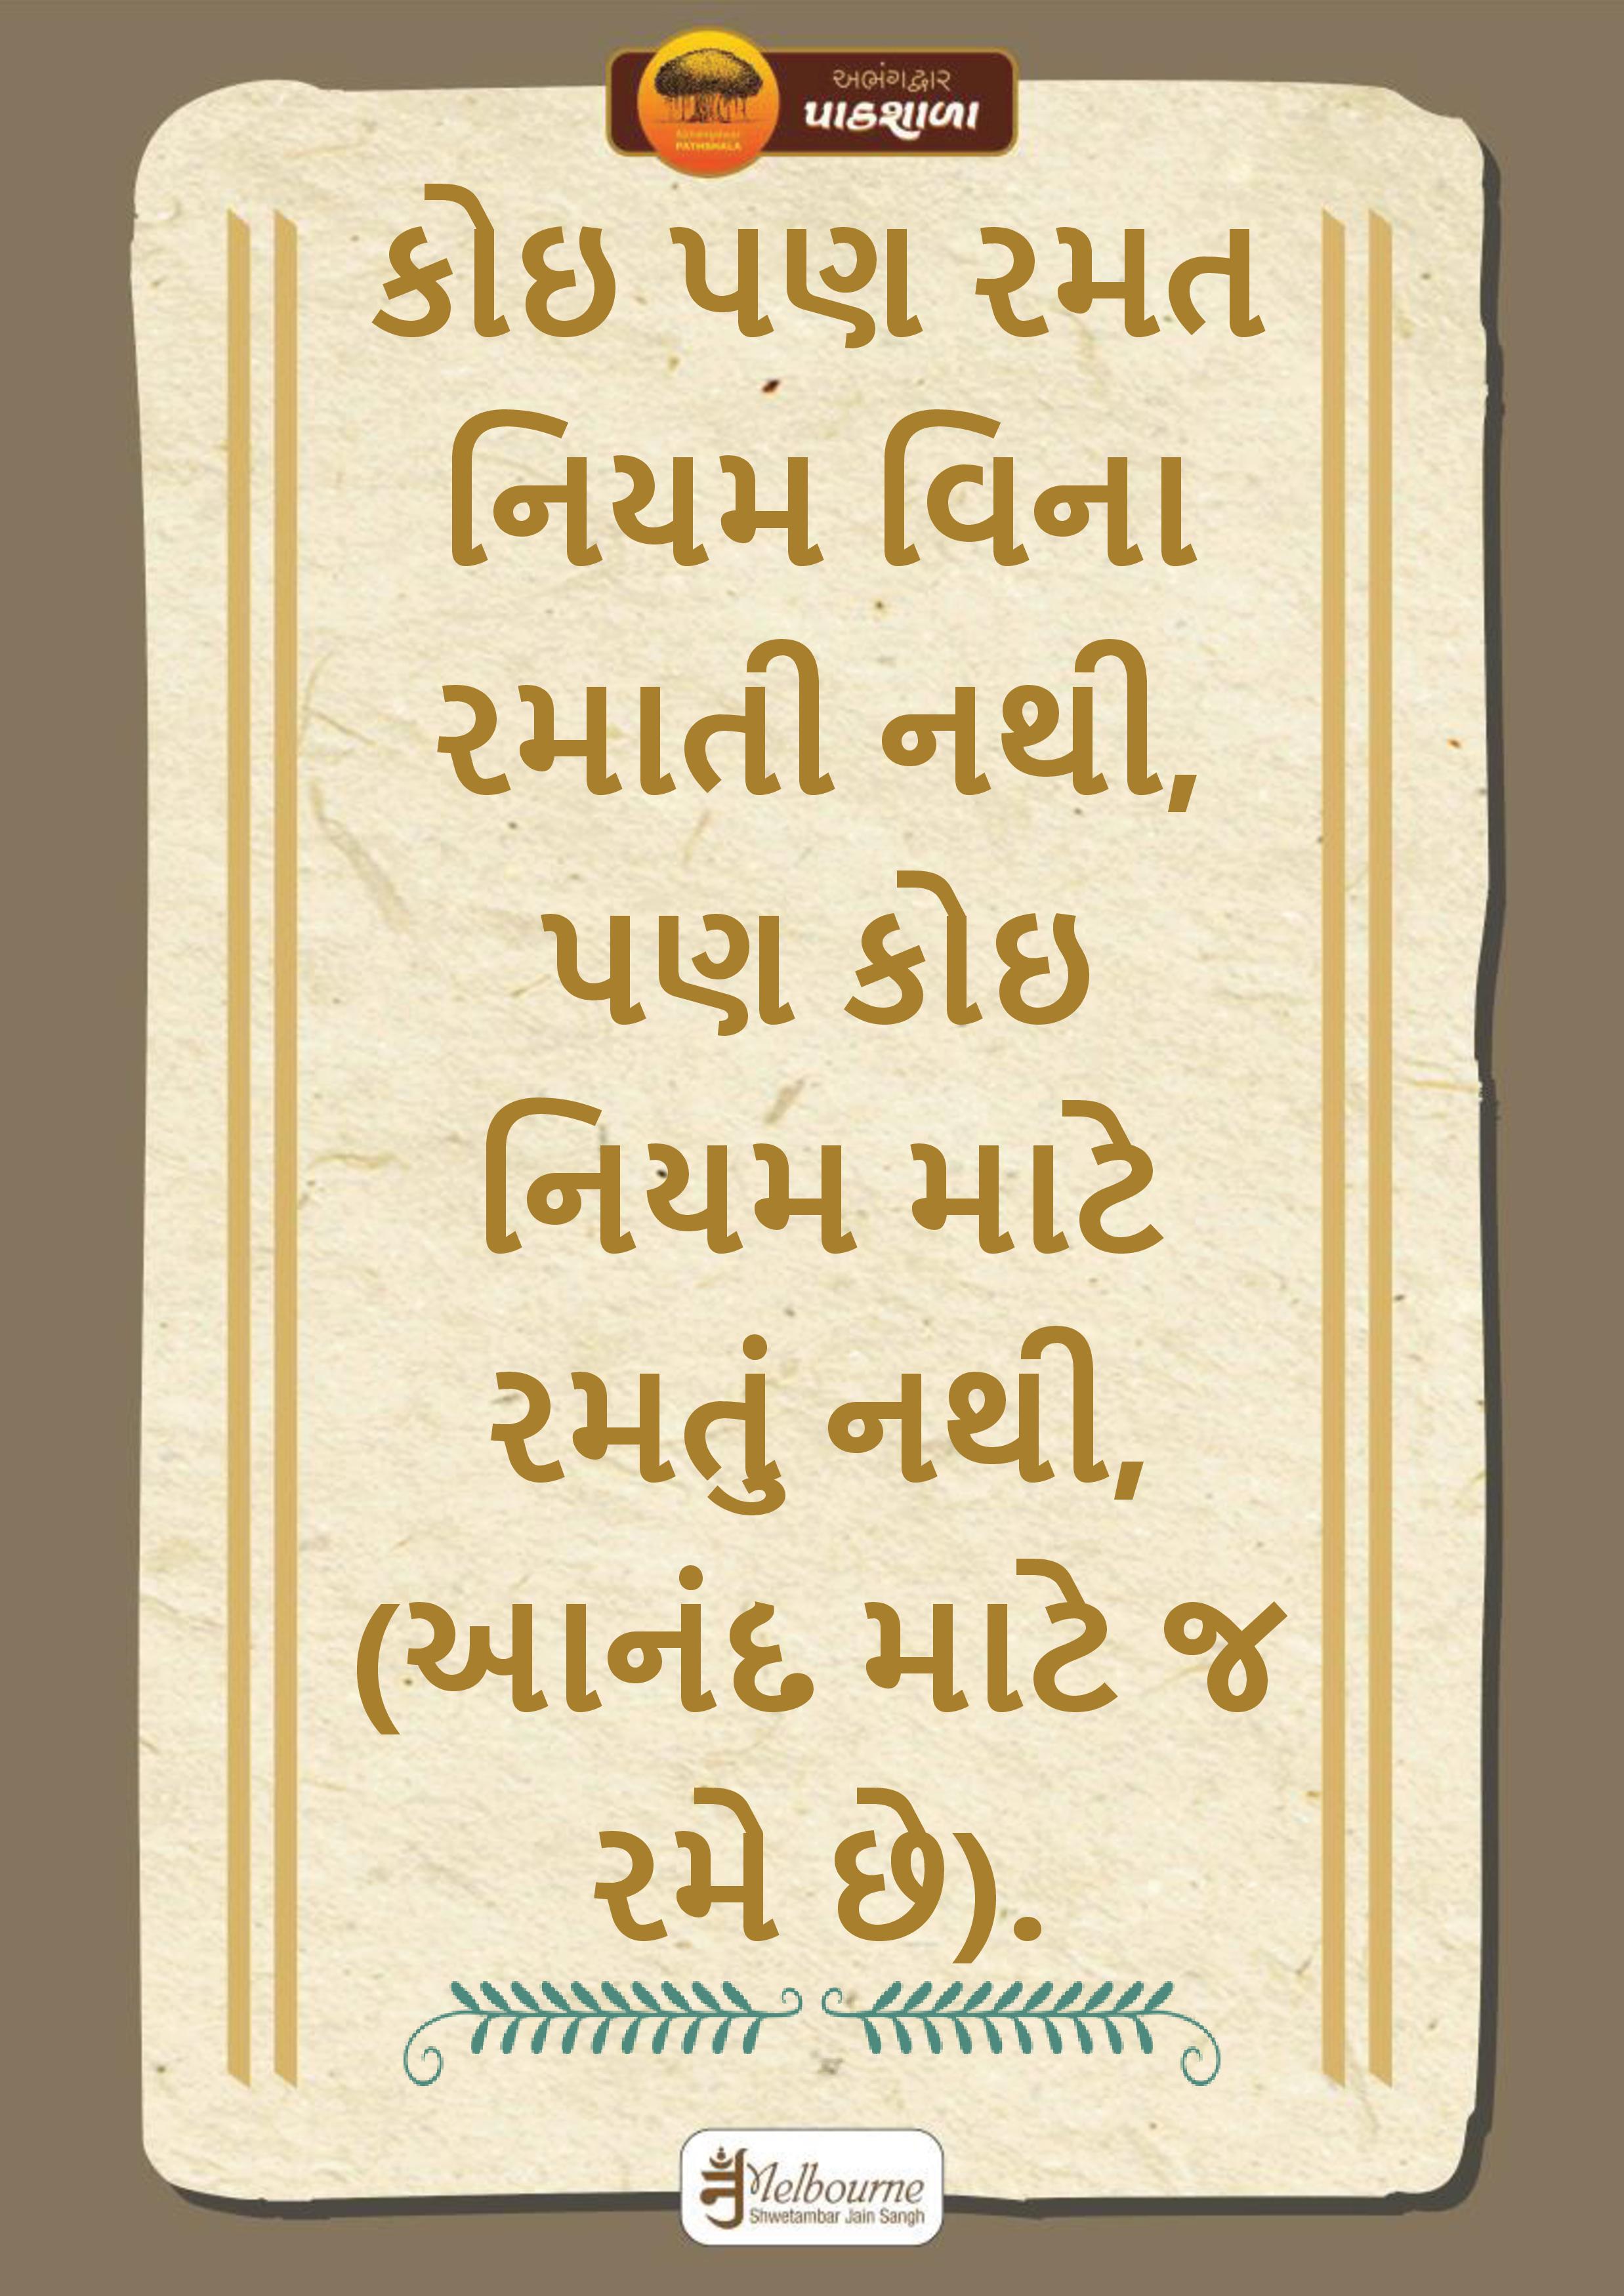 અભંગદ્વાર
પાઠશાળા
Abhangdwar
PATHSHALA
કોઇ પણ રમત
નિયમ વિના
રમાતી નથી,
પણ કોઇ
નિયમ માટે
રમતું નથી,
(આનંદ માટે જ
રમે છે).
Melbourne
Shwetambar Jain Sangh